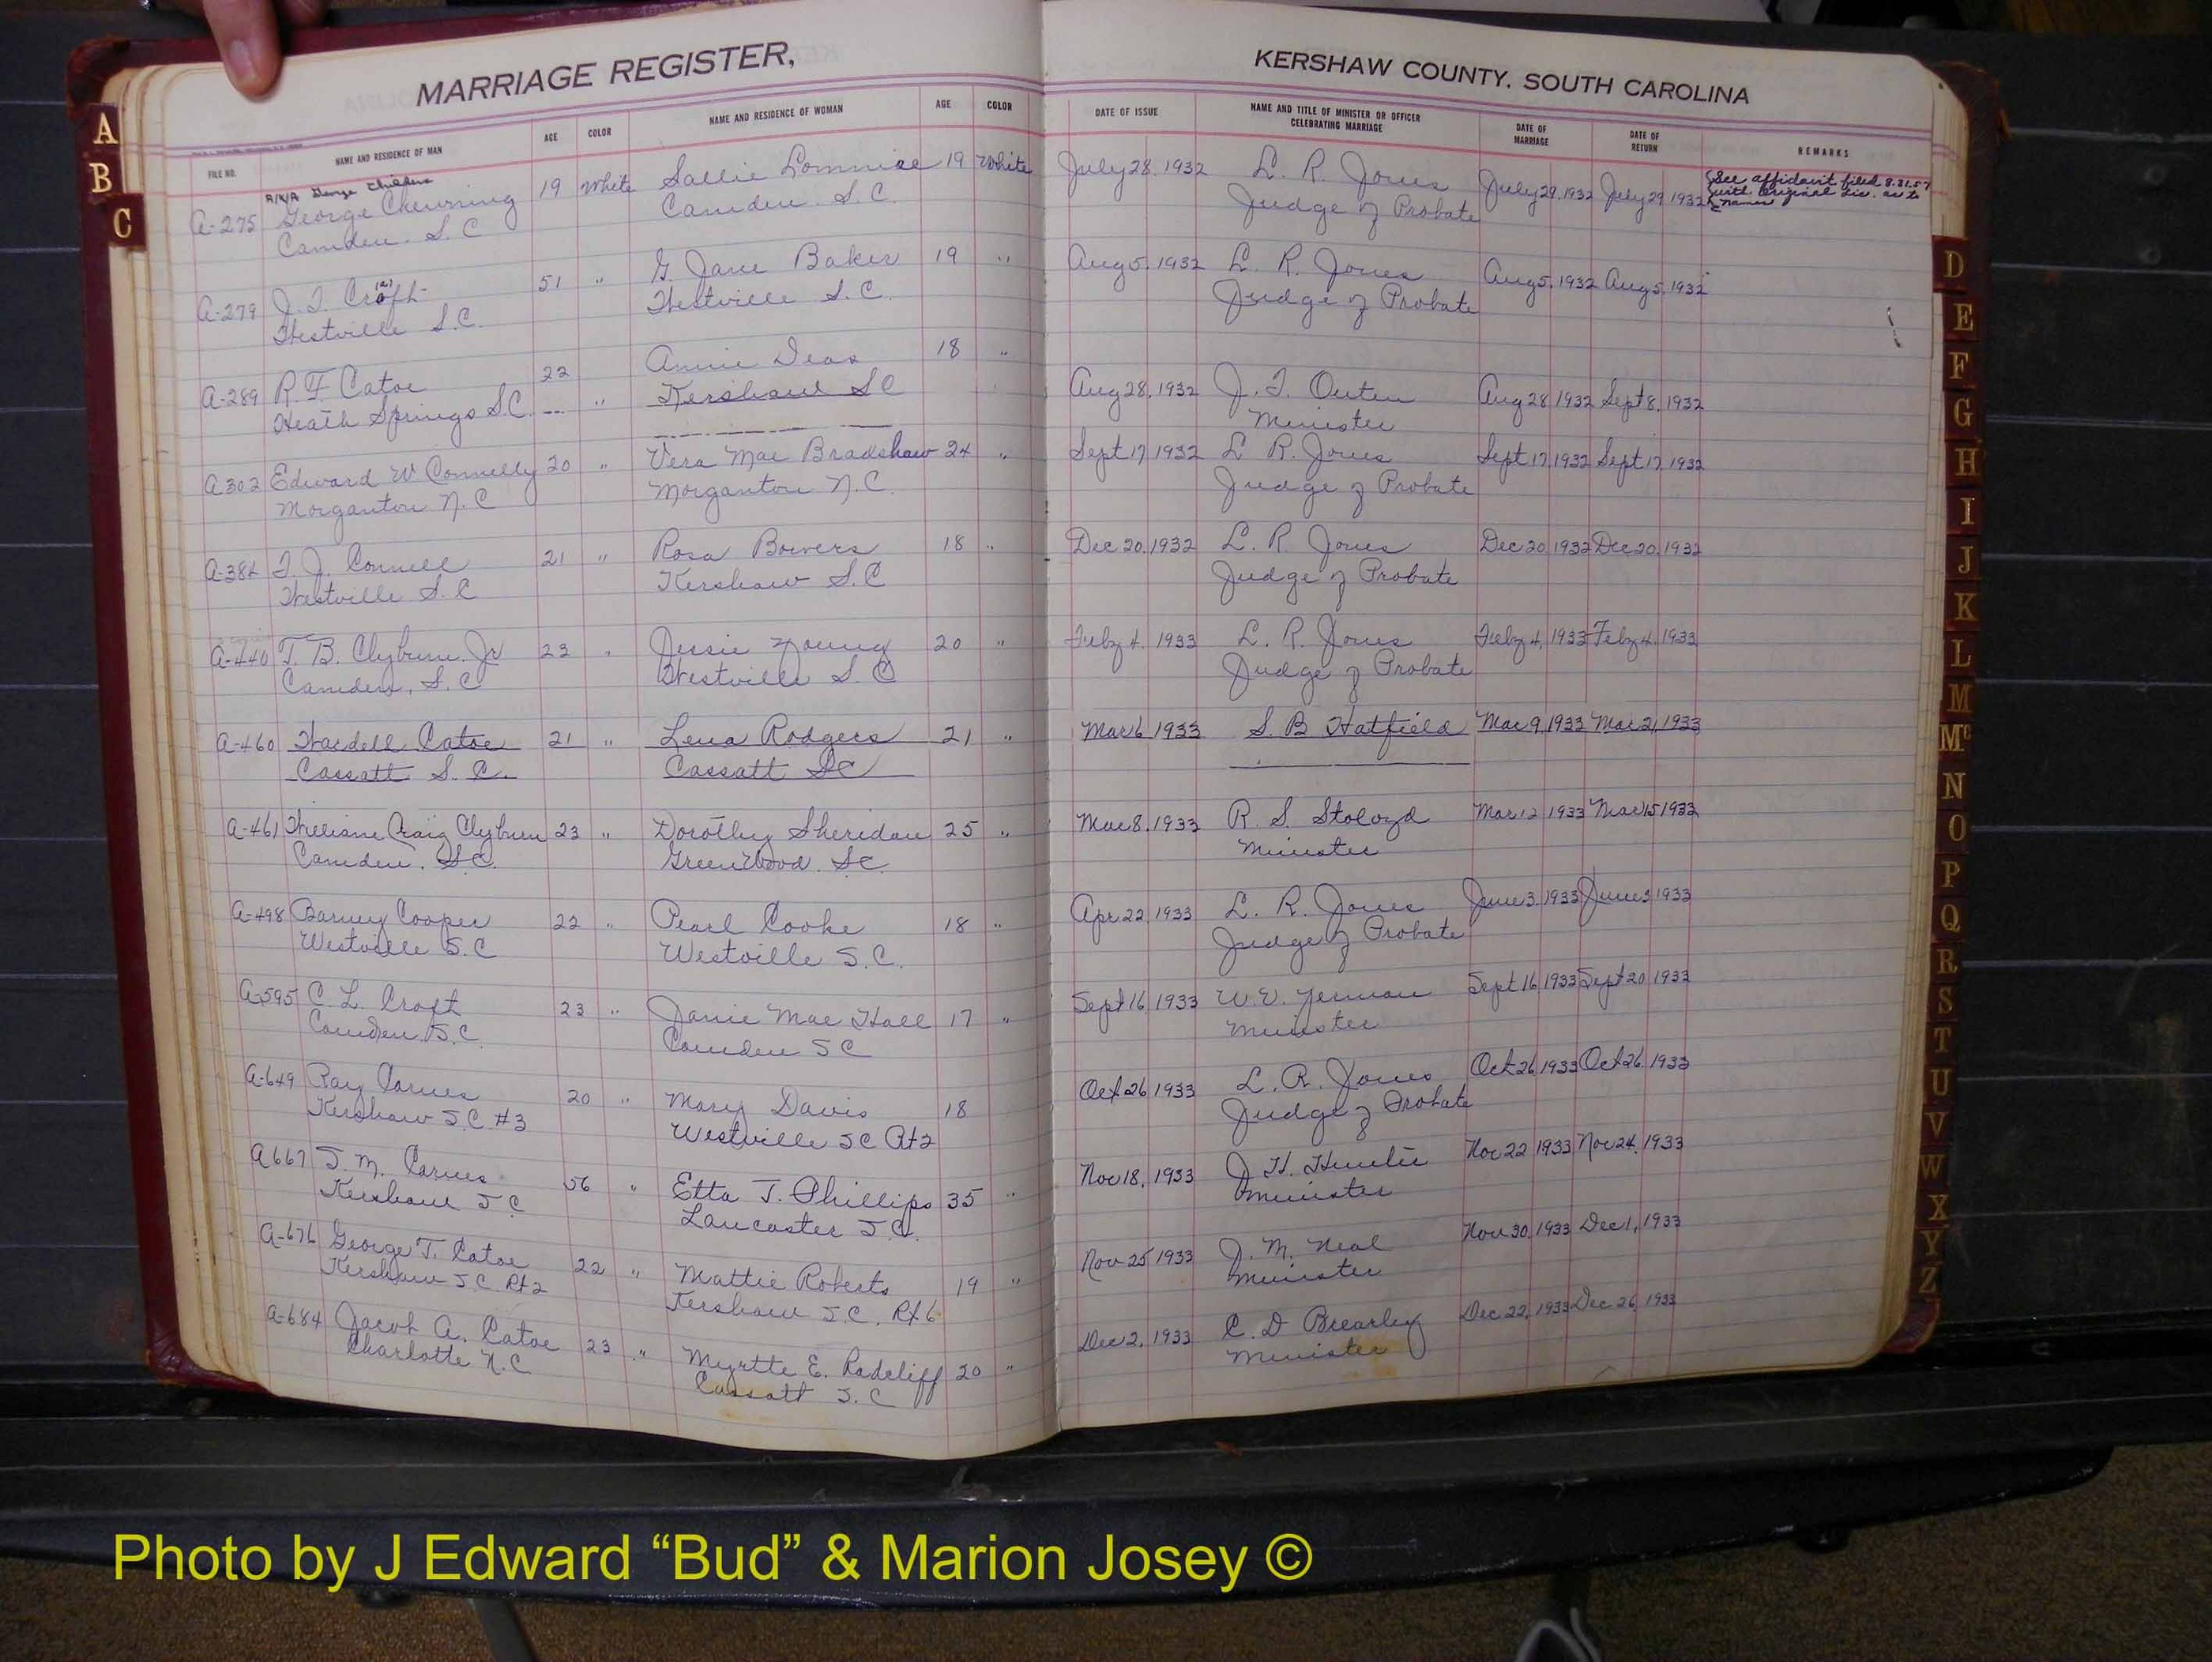 MARRIAGE REGISTER,
KERSHAW COUNTY, SOUTH CAROLINA
FILE NO. NAME AND RESIDENCE OF MAN AGE COLOR NAME AND RESIDENCE OF WOMAN AGE COLOR DATE OF ISSUE NAME AND TITLE OF MINISTER OR OFFICER CELEBRATING MARRIAGE DATE OF MARRIAGE DATE OF RETURN REMARKS
A/K/A George Childers
A-275 George Chewning 19 White Sallie 19 White July 28, 1932 L. R. Jones July 29, 1932 July 29 1932 See affidavit filed 8.31.57
Camden. S. C Camden. S. C. Judge of Probate with original Lic. as to
names
A-279 J. T. Croft (a) 51 " G. Jane Baker 19 " Aug 5, 1932 L. R. Jones Aug 5, 1932 Aug 5, 1932
Westville S.C. Westville S.C. Judge of Probate
A-289 R. F. Catoe 22 Annie Deas 18 " Aug 28, 1932 J. T. Outen Aug 28 1932 Sept 8, 1932
Heath Springs S.C. " Kershaw SC Minister
A302 Edward W Connelly 20 " Vera Mae Bradshaw 24 " Sept 17 1932 L R. Jones Sept 17, 1932 Sept 17, 1932
Morganton N. C Morganton N. C. Judge of Probate
A-384 T. J. Connell 21 " Rosa Bowers 18 " Dec 20, 1932 L. R. Jones Dec 20 1932 Dec 20, 1932
Westville S. C Kershaw S. C Judge of Probate
A-440 T. B. Clyburn. Jr 23 " Jessie Young 20 " Feby 4. 1933 L. R. Jones Feby 4, 1933 Feby 4. 1933
Camden, S. C Westville S. C Judge of Probate
A-460 Wardell Catoe 21 " Lena Rodgers 21 " Mar 6 1933 S. B Hatfield Mar 9, 1933 Mar 21, 1933
Cassatt S. C. Cassatt SC
A-461 William Craig Clyburn 23 " Dorothy Sheridan 25 " Mar 8, 1933 R. S. Mar 12 1933 Mar 15 1933
Camden. S.C. Greenwood. SC Minister
A-498 Barney Cooper 22 " Pearl Cooke 18 " Apr 22 1933 L. R. Jones June 3, 1933 June 3 1933
Westville S. C Westville S. C. Judge of Probate
A-595 C. L. Croft 23 " Janie Mae Hall 17 " Sept 16 1933 W. V. Jerman Sept 16 1933 Sept 20 1933
Camden S.C. Camden SC Minister
A-649 Ray Carnes 20 " Mary Davis 18 Oct 26 1933 L. R. Jones Oct 26 1933 Oct 26. 1933
Kershaw S.C. #3 Westville SC Rt 2 Judge of Probate
A667 J. M. Carnes 56 " Etta J. Phillips 35 " Nov 18, 1933 J H. Hunter Nov 22 1933 Nov 24, 1933
Kershaw S C Lancaster S. C. Minister
A-676 George T. Catoe 22 " Mattie Roberts 19 " Nov 25 1933 J. M. Neal Nov 30, 1933 Dec 1, 1933
Kershaw S.C. Rt 2 Kershaw S.C. Rt 6 Minister
A-684 Jacob A. Catoe 23 " Myrtte E. Radcliff 20 " Dec 2, 1933 C. D Brearley Dec 22, 1933 Dec 26, 1933
Charlotte N. C Cassatt S. C Minister
A
B
C
D
E
F
G
H
I
J
K
L
M
Mc
N
O
P
Q
R
S
T
U
V
W
X
Y
Z
Photo by J Edward “Bud” & Marion Josey ©